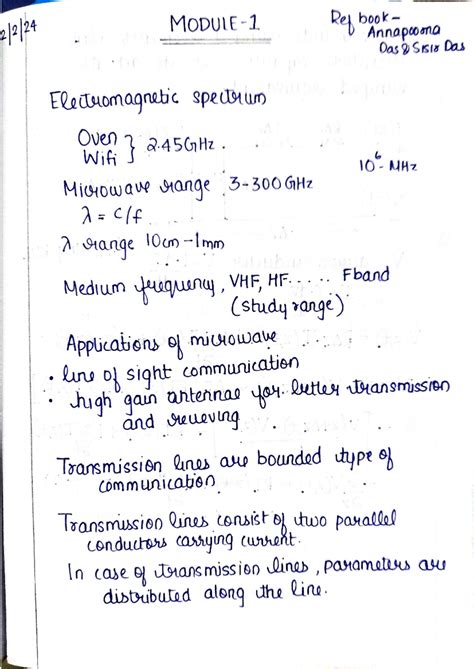 2/2/24
MODULE-1
Ref book-
Annapoorna
Das & Sisir Das
Electromagnetic spectrum
Oven } 2.45GHz.
Wifi
10^6 - MHz
Microwave range 3-300 GHz
λ = c/f
λ range 10cm-1mm
Medium frequency, VHF, HF...... Fband
(study range)
Applications of microwave
• line of sight communication
• high gain antennae for better transmission
and recieving
Transmission lines are bounded type of
communication
Transmission lines consist of two parallel
conductors carrying current.
In case of transmission lines, parameters are
distributed along the line.